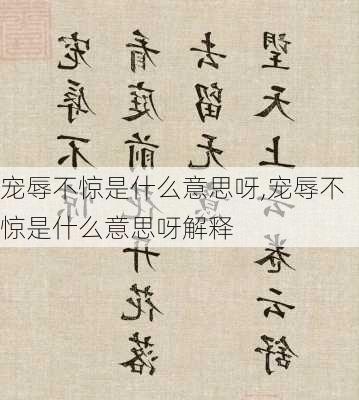 宠辱不惊
看庭前花开花落
去留无意
望天上云卷云舒
宠辱不惊是什么意思呀,宠辱不
惊是什么意思呀解释